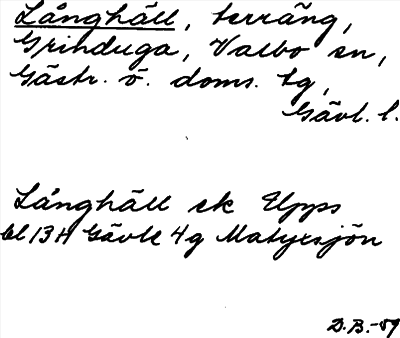 Långhäll, terräng,
Grinduga, Valbo sn,
Gästr. ö. doms. tg,
Gävl. l.
Långhäll ek Upps
bl 13H Gävle 4g Matyxsjön
D.B.-59